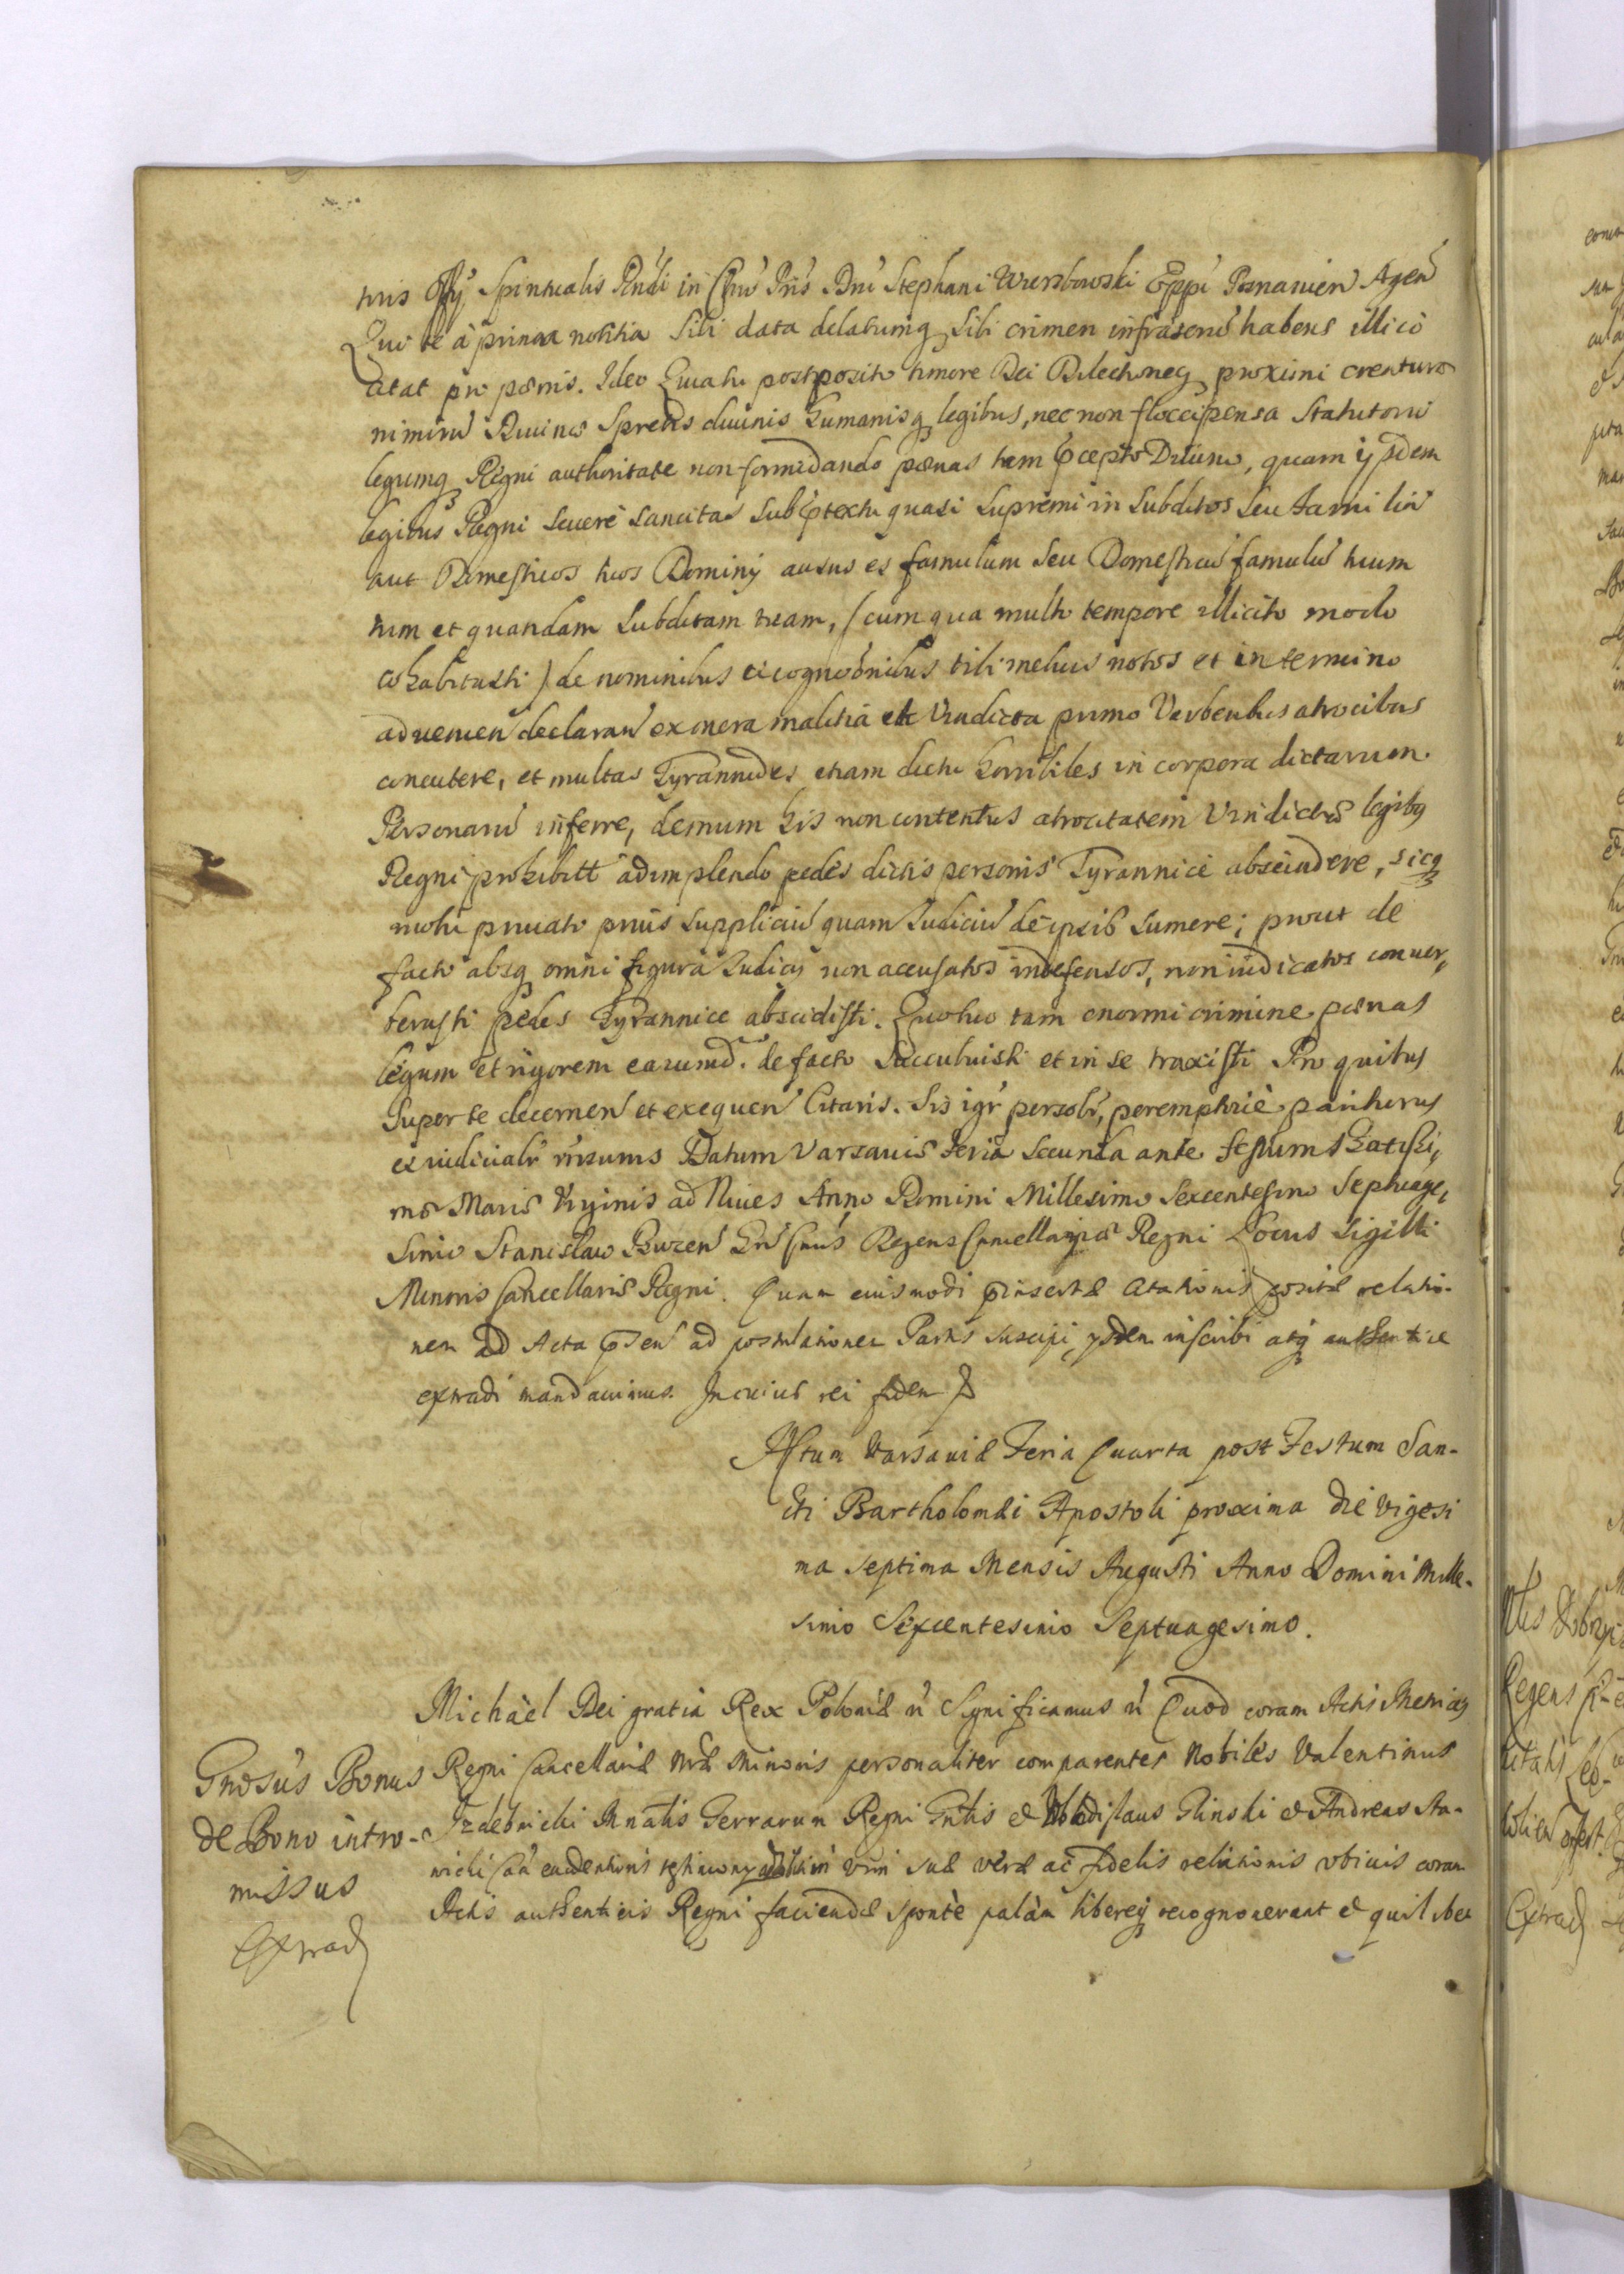 turis Offÿ Spiritualis Rndi in Chro Pris Dni Stephani Wierzbowski Eppi Posnanien Agen
Qui te à prima notitia Sibi data delatumq Sibi crimen infrascru habens illico
citat pro pænis. Ideo Quia tu postposito timore Dei Dilectioneq proximi creaturæ
nimiru Diuinæ Spretis diuinis humanisq legibus, nec non floccipensa Statutoru
legumq Regni authoritate non formidando pænas tam præcepto Diuino, quam ijsdem
legibus Regni Seuere Sancitas Sub prætextu quasi Supremi in Subditos Seu Familia
aut Domesticos tuos Dominÿ ausus es famulum Seu Domesticu famulu tuum
tum et quandam Subditam tuam, (cum qua multo tempore illicito modo
cohabitasti) de nominibus et cognominibus tibi melius notos et in termino
aduenien declaran ex mera malitia et Vindicta primo Verberibus atrocibus
concutere, et multas Tyrannides etiam dictu horribiles in corpora dictarum
Personaru inferre, demum his non contentus atrocitatem Vindictæ legibq
Regni prohibitæ adimplendo pedes dictis personis Tyrannice abscindere, sicq
motu priuato prius Suppliciu quam Iudiciu de ipsis Sumere; prout de
facto absq omni figura Iudicij non accusatos indefensos, non iudicatos conuer,
berasti pedes Tyrannice abscidisti. Quo tuo tam enormi crimine pænas
legum et rigorem earumd. de facto Succubuisti et in se traxisti Pro quibus
Super te decernen et exequen Citaris. Sis igr personlr, peremptriè pariturus
et iudicialr rnsurus Datum Varsauiæ feria Secunda ante festum SSatissi,
mæ Mariæ Virginis ad Niues Anno Domini Millesimo Sexcentesimo Septuage,
Simo Stanislaw Buzen Regens Cancellariæ Regni Locus Sigilli
Minoris Cancellariæ Regni. Quam eiusmodi præinsertæ Citationis positæ relatio-
nem ad Acta præsen ad postulationem Partis Suscipi, ysdem inscribi atq authentice
extradi mandauimus. In cuius rei fidem
Actum Varsauiæ Feria Quarta post Festum San-
cti Bartholomæi Apostoli proxima die vigesi
ma septima Mensis Augusti Anno Domini Mille-
simo Sexcentesimo Septuagesimo.
Michäel Dei gratia Rex Poloniæ Significamus Quod coram Actis Metricæ
Gnosus Bonus
de Bono intro-
missus
Extrad
Regni Cancellariæ Nræ Minoris personaliter comparentes Nobiles Valentinus
Izdebnicki Mnalis Terrarum Regni Gnlis et Vladislaus Glinski et Andreas
euidentioris testimony sui suæ veræ ac fidelis relationis vbiuis coram
Actis authenticis Regni faciendæ sponte palàm libereq recognouerunt et quilibet